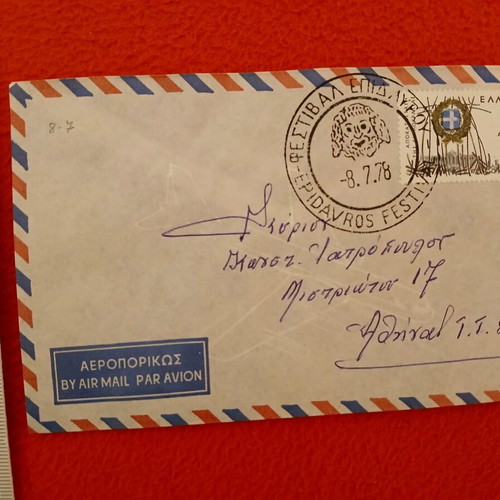 8-7
ΦΕΣΤΙΒΑΛ ΕΠΙΔΑΥΡΟΥ
-8.7.78
EPIDAVROS FESTIVAL
ΕΛΛ
Κύριον
Κωνστ. Ιατρόπουλον
Μιστριώτου 17
Αθήναι Τ.Τ.
ΑΕΡΟΠΟΡΙΚΩΣ
BY AIR MAIL PAR AVION